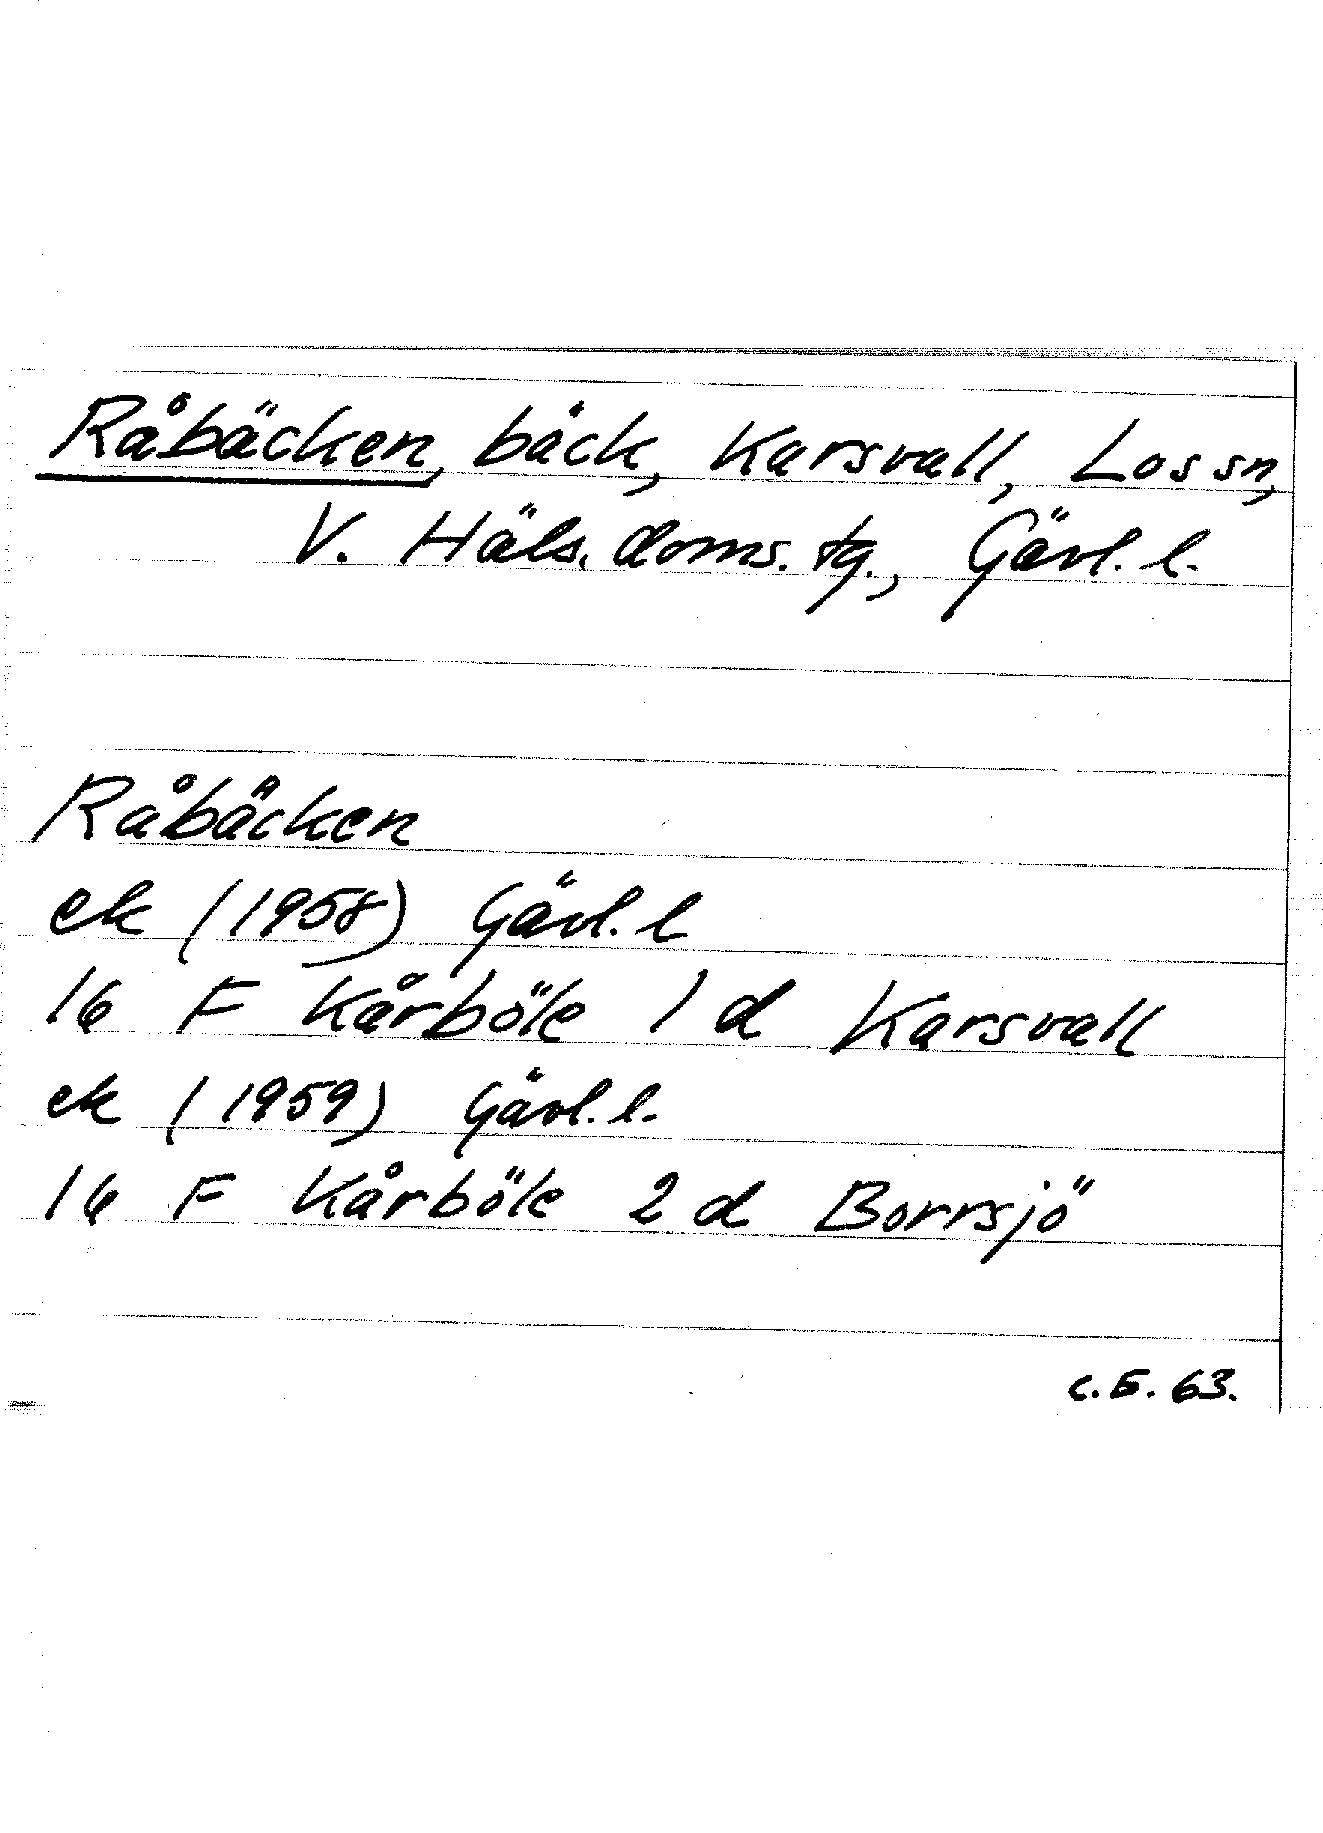 Råbäcken, bäck, Karsvall, Los sn,
V. Häls. doms. tg., Gävl. l.
Råbäcken
ek (1958) Gävl. l
16 F Kårböle 1 d Karsvall
ek (1959) Gävl. l.
16 F Kårböle 2 d Borrsjö
C. E. 63.